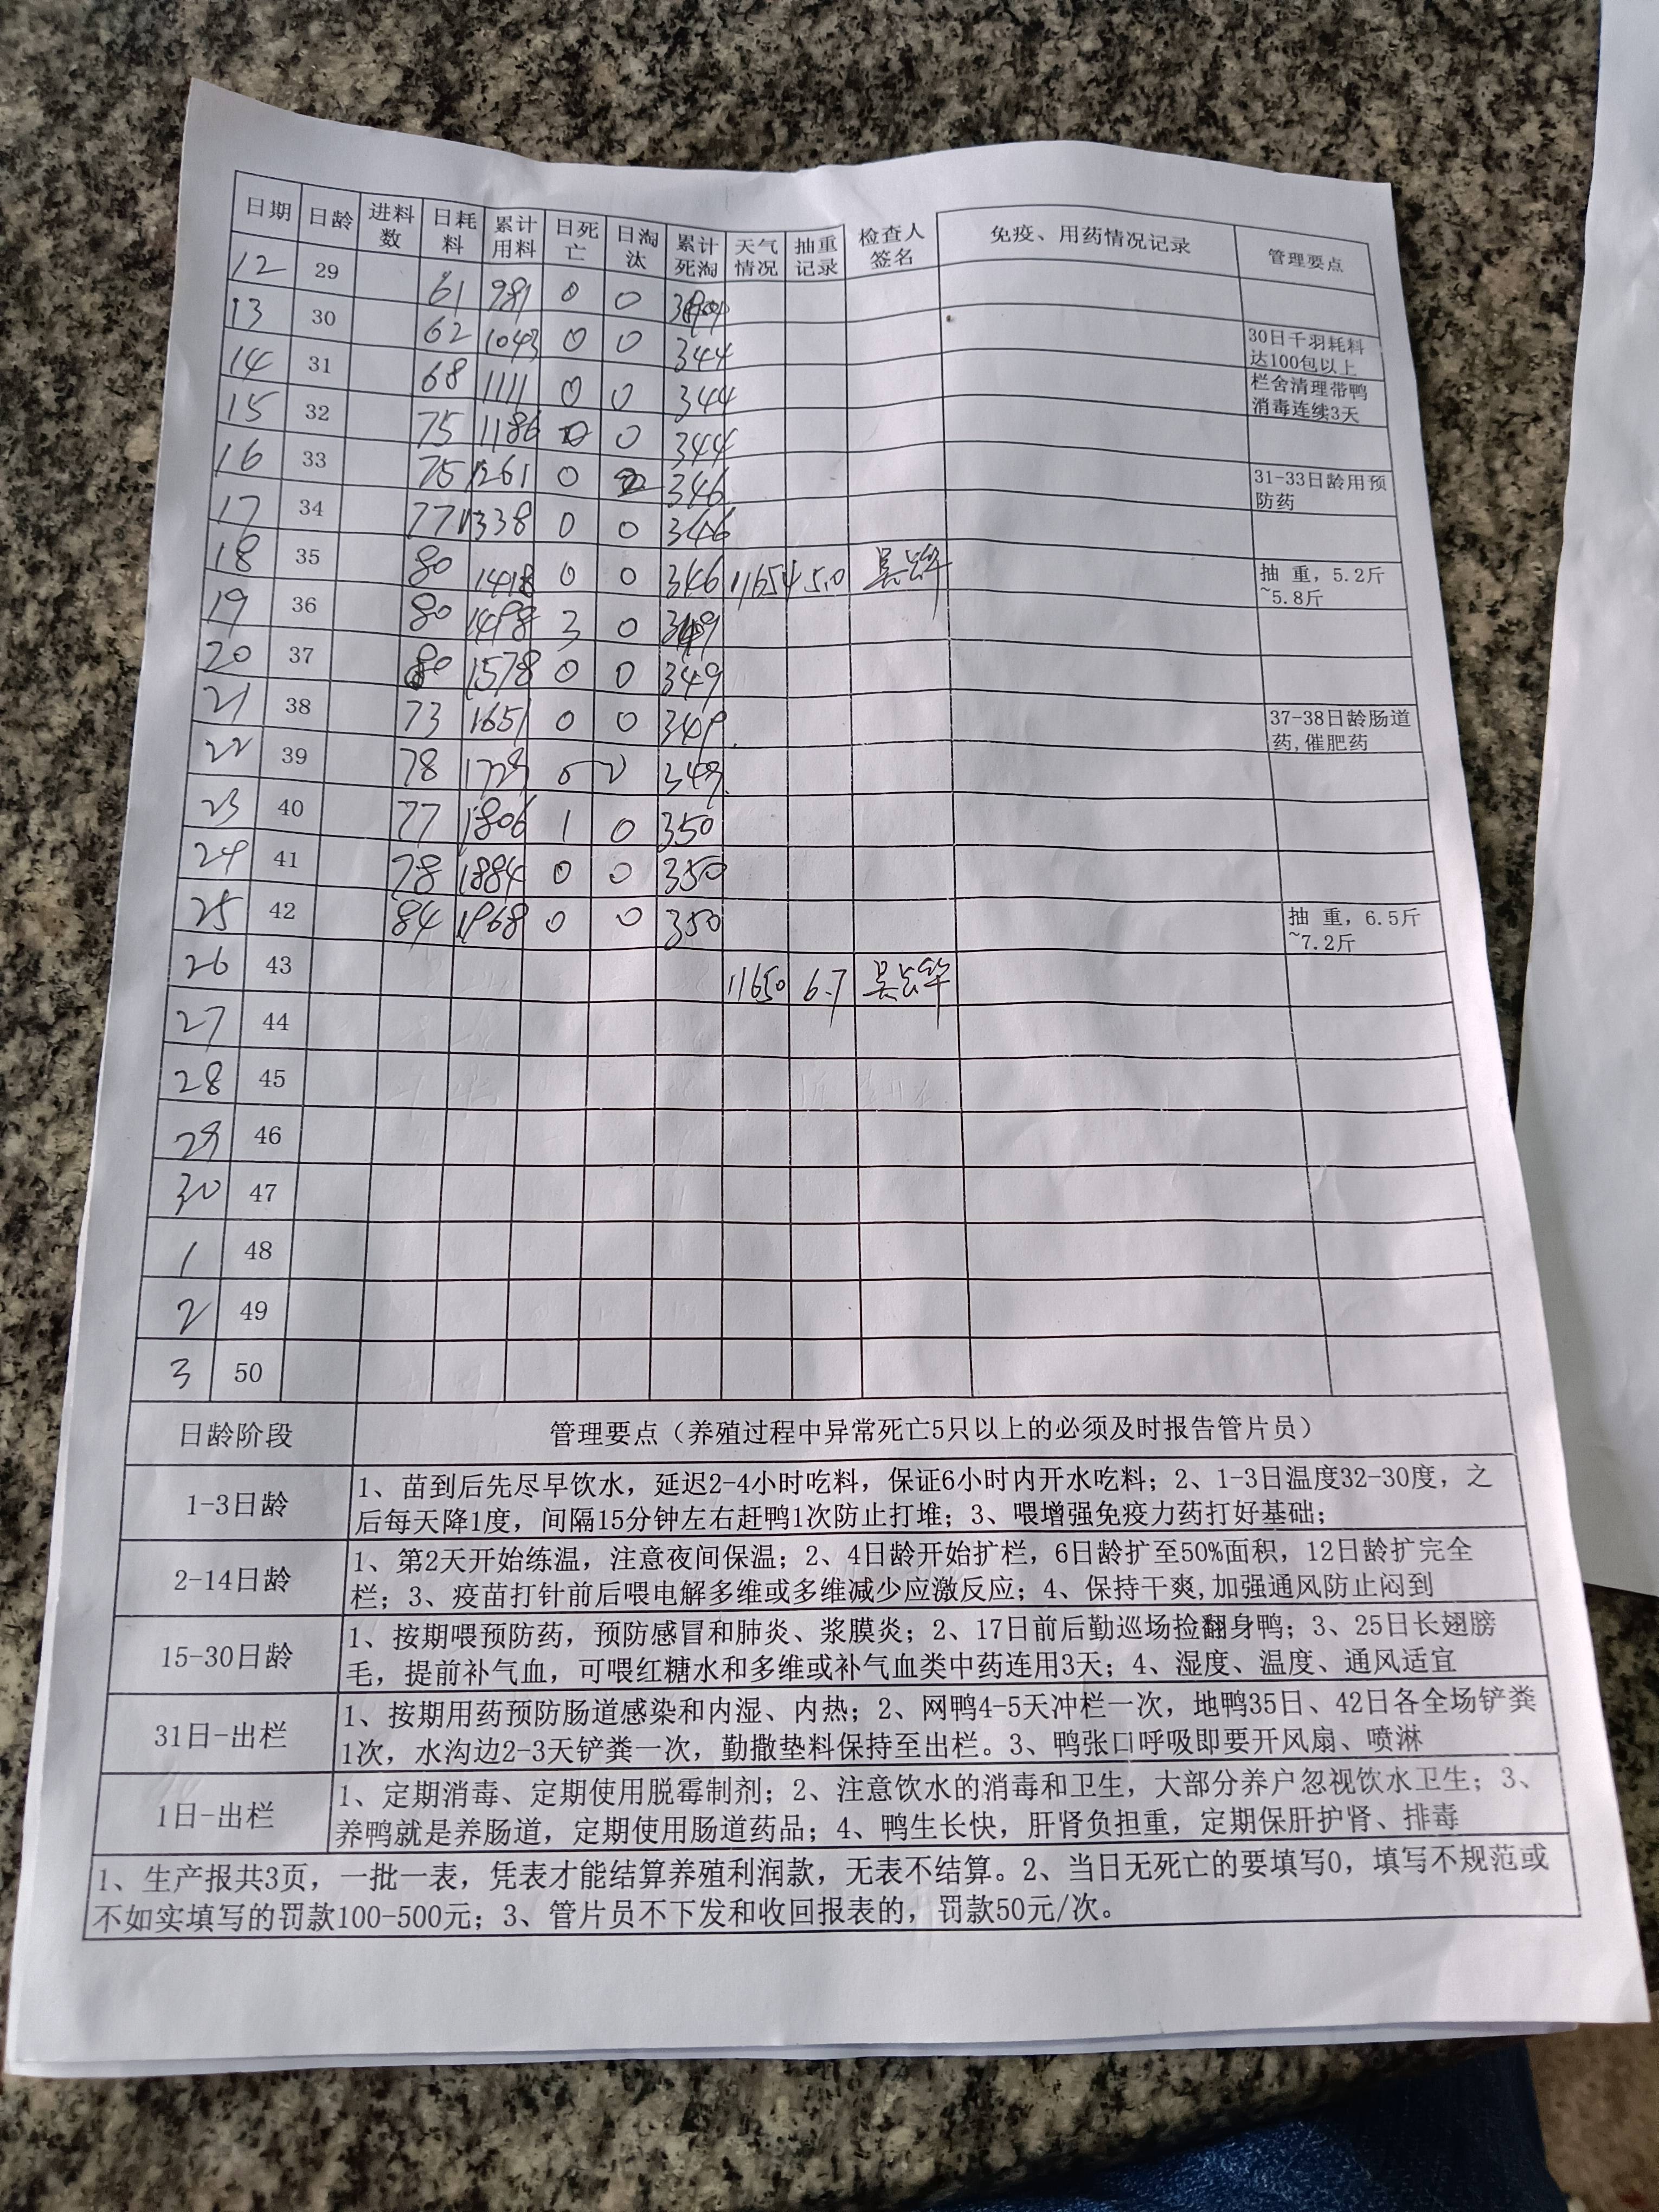 日期 日龄 进料数 日耗料 累计用料 日死亡 日淘汰 累计死淘 天气情况 抽重记录 检查人签名 免疫、用药情况记录 管理要点
12 29 61 981 0 0
13 30 62 1043 0 0 344 30日千羽耗料达100包以上
14 31 68 1111 0 0 344 栏舍清理带鸭消毒连续3天
15 32 75 1186 0 0 344
16 33 75 1261 0 2 346 31-33日龄用预防药
17 34 77 1338 0 0 346
18 35 80 1418 0 0 346 11654 5.0 抽 重，5.2斤~5.8斤
19 36 80 1498 3 0 349
20 37 80 1578 0 0 349
21 38 73 1651 0 0 349 37-38日龄肠道药,催肥药
22 39 78 1729 0 0 349
23 40 77 1806 1 0 350
24 41 78 1884 0 0 350
25 42 84 1968 0 0 350 抽 重，6.5斤~7.2斤
26 43 11650 6.7
27 44
28 45
29 46
30 47
1 48
2 49
3 50
日龄阶段 管理要点（养殖过程中异常死亡5只以上的必须及时报告管片员）
1-3日龄
1、苗到后先尽早饮水，延迟2-4小时吃料，保证6小时内开水吃料；2、1-3日温度32-30度，之
后每天降1度，间隔15分钟左右赶鸭1次防止打堆；3、喂增强免疫力药打好基础；
2-14日龄
1、第2天开始练温，注意夜间保温；2、4日龄开始扩栏，6日龄扩至50%面积，12日龄扩完全
栏；3、疫苗打针前后喂电解多维或多维减少应激反应；4、保持干爽,加强通风防止闷到
15-30日龄
1、按期喂预防药，预防感冒和肺炎、浆膜炎；2、17日前后勤巡场捡翻身鸭；3、25日长翅膀
毛，提前补气血，可喂红糖水和多维或补气血类中药连用3天；4、湿度、温度、通风适宜
31日-出栏
1、按期用药预防肠道感染和内湿、内热；2、网鸭4-5天冲栏一次，地鸭35日、42日各全场铲粪
1次，水沟边2-3天铲粪一次，勤撒垫料保持至出栏。3、鸭张口呼吸即要开风扇、喷淋
1日-出栏
1、定期消毒、定期使用脱霉制剂；2、注意饮水的消毒和卫生，大部分养户忽视饮水卫生；3、
养鸭就是养肠道，定期使用肠道药品；4、鸭生长快，肝肾负担重，定期保肝护肾、排毒
1、生产报共3页，一批一表，凭表才能结算养殖利润款，无表不结算。2、当日无死亡的要填写0，填写不规范或
不如实填写的罚款100-500元；3、管片员不下发和收回报表的，罚款50元/次。